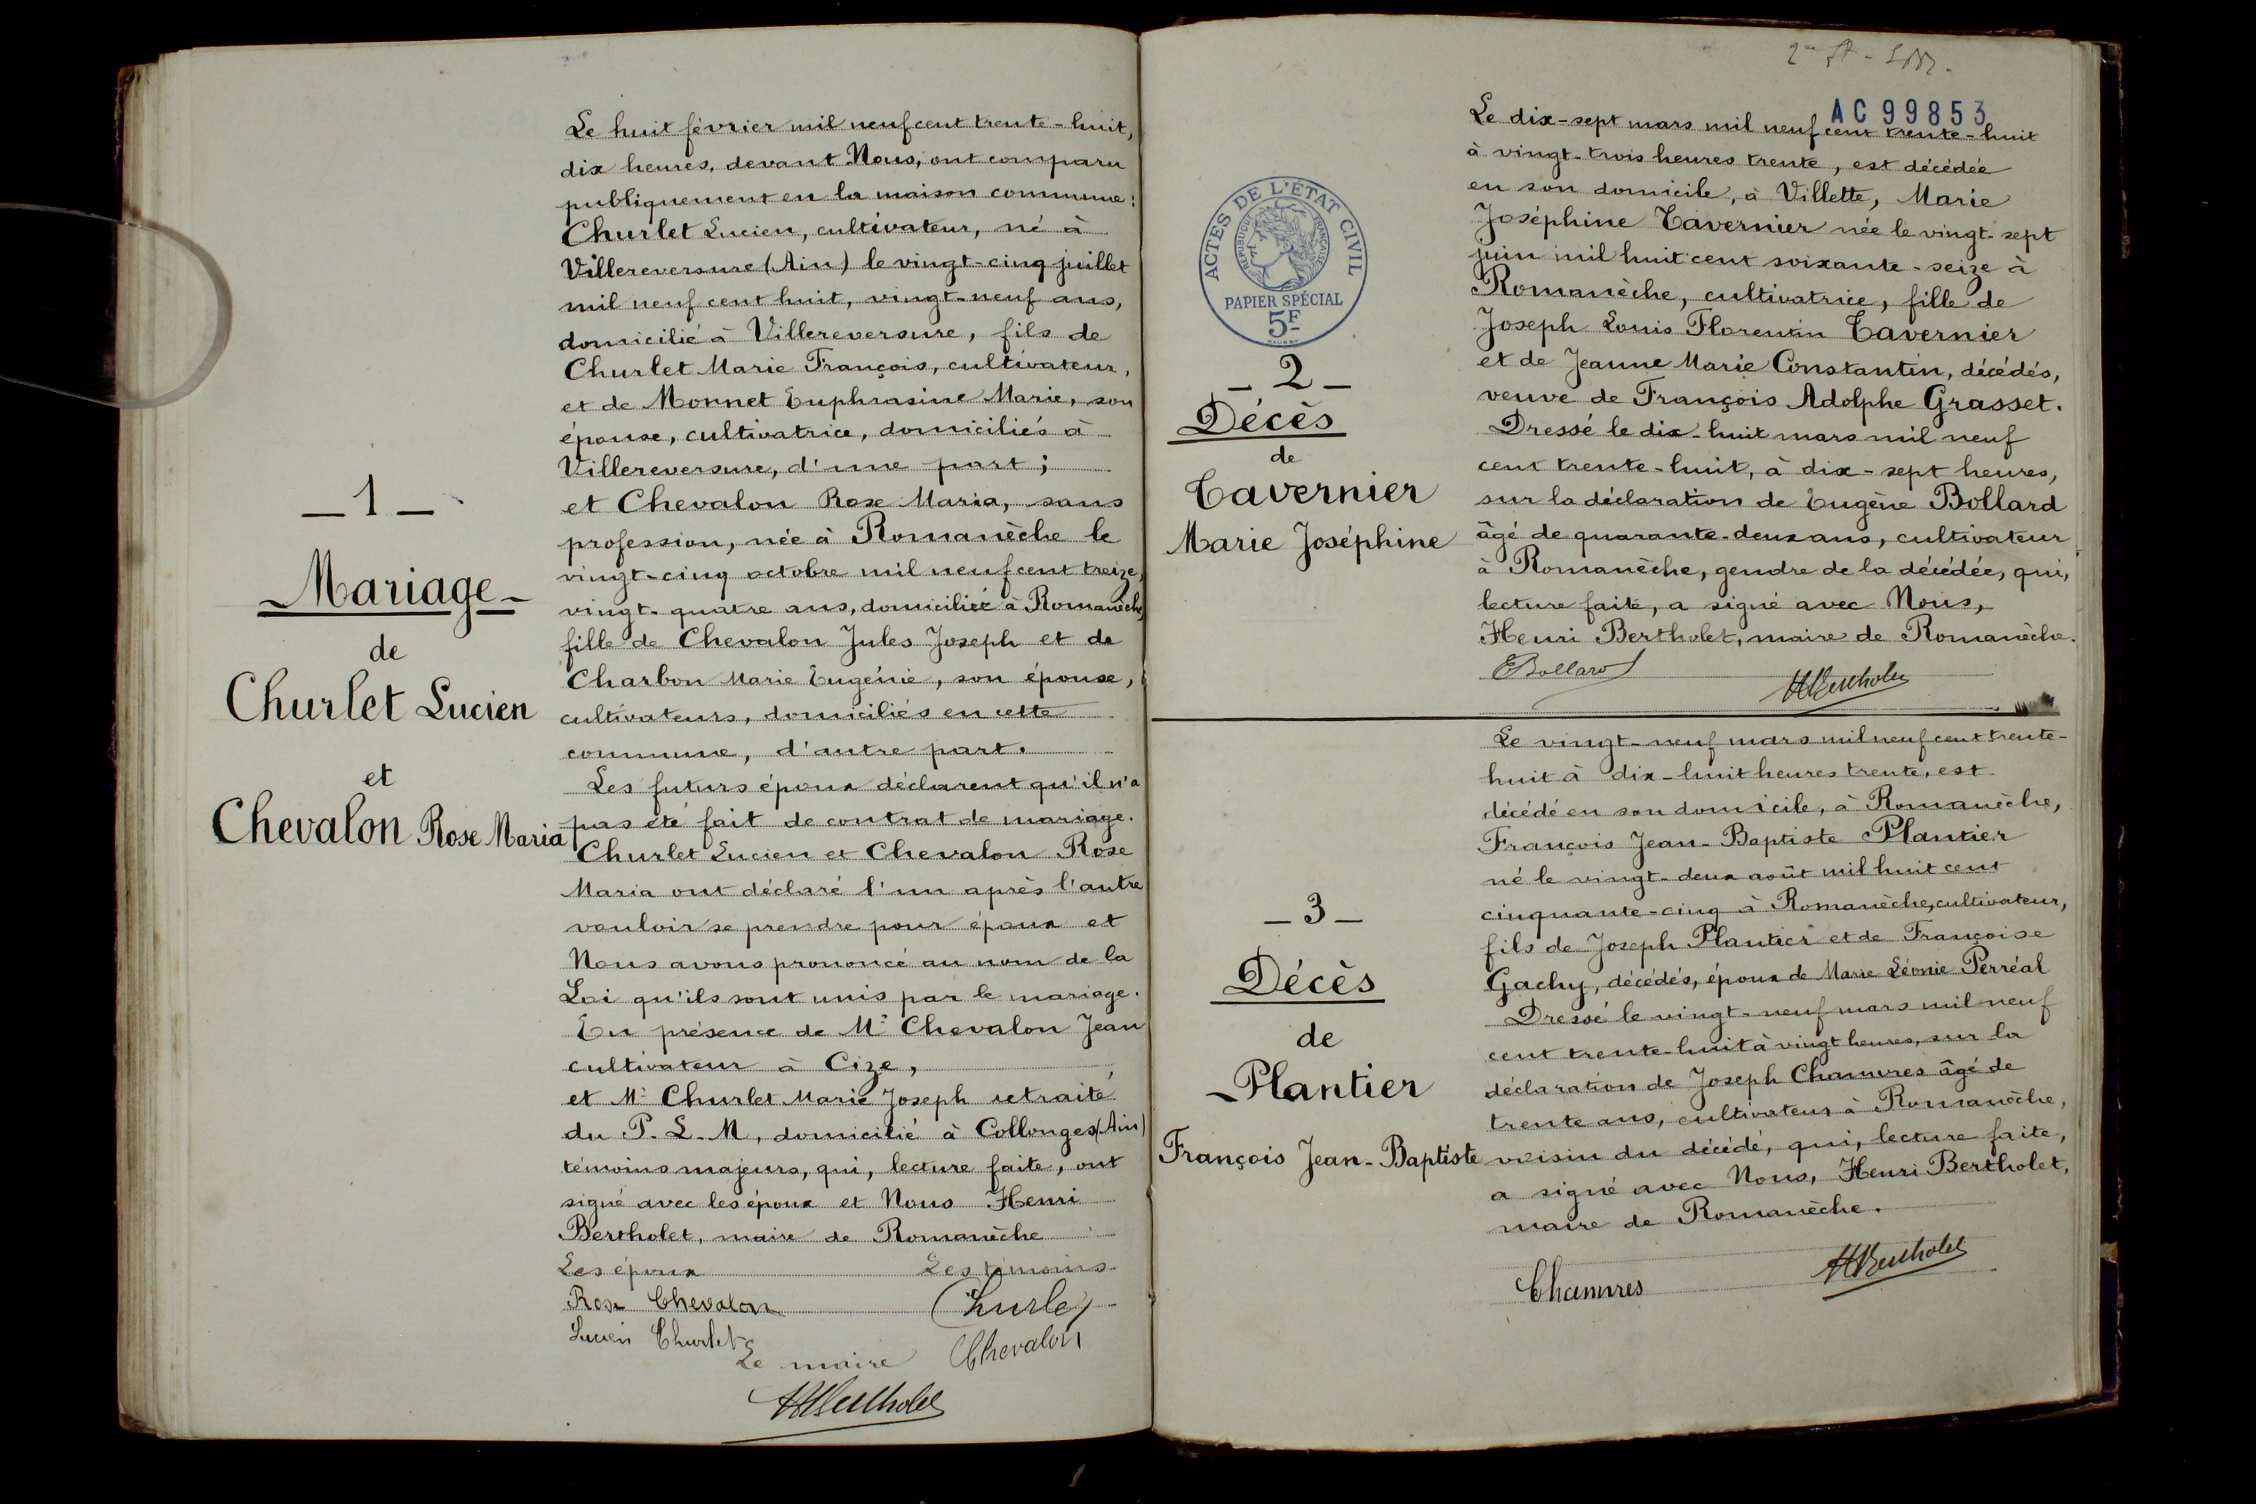 — 1 —
Mariage
de
Churlet Lucien
et
Chevalon Rose Maria
Le huit février mil neuf cent trente-huit,
dix heures, devant Nous, ont comparu
publiquement en la maison commune :
Churlet Lucien, cultivateur, né à
Villereversure (Ain) le vingt-cinq juillet
mil neuf cent huit, vingt-neuf ans,
domicilié à Villereversure, fils de
Churlet Marie François, cultivateur,
et de Monnet Euphrasine Marie, son
épouse, cultivatrice, domiciliés à
Villereversure, d'une part ;
et Chevalon Rose Maria, sans
profession, née à Romanèche le
vingt-cinq octobre mil neuf cent treize,
vingt-quatre ans, domiciliée à Romanèche,
fille de Chevalon Jules Joseph et de
Charbon Marie Eugénie, son épouse,
cultivateurs, domiciliés en cette
commune, d'autre part.
Les futurs époux déclarent qu'il n'a
pas été fait de contrat de mariage.
Churlet Lucien et Chevalon Rose
Maria ont déclaré l'un après l'autre
vouloir se prendre pour époux et
Nous avons prononcé au nom de la
Loi qu'ils sont unis par le mariage.
En présence de Mr Chevalon Jean
cultivateur à Cize,
et Mr Churlet Marie Joseph retraité
du P.L.M, domicilié à Collonges (Ain)
témoins majeurs, qui, lecture faite, ont
signé avec les époux et Nous Henri
Bertholet, maire de Romanèche
Les époux Les témoins
Rose Chevalon Churlet
Lucien Churlet Chevalon
Le maire
HBertholet
AC 99853
ACTES DE L'ÉTAT CIVIL
RÉPUBLIQUE FRANÇAISE
PAPIER SPÉCIAL
5F
— 2 —
Décès
de
Tavernier
Marie Joséphine
Le dix-sept mars mil neuf cent trente-huit
à vingt-trois heures trente, est décédée
en son domicile, à Villette, Marie
Joséphine Tavernier née le vingt-sept
juin mil huit cent soixante-seize à
Romanèche, cultivatrice, fille de
Joseph Louis Florentin Tavernier
et de Jeanne Marie Constantin, décédés,
veuve de François Adolphe Grasset.
Dressé le dix-huit mars mil neuf
cent trente-huit, à dix-sept heures,
sur la déclaration de Eugène Bollard
âgé de quarante-deux ans, cultivateur
à Romanèche, gendre de la décédée, qui,
lecture faite, a signé avec Nous,
Henri Bertholet, maire de Romanèche.
EBollard HBertholet
— 3 —
Décès
de
Plantier
François Jean-Baptiste
Le vingt-neuf mars mil neuf cent trente-
huit à dix-huit heures trente, est
décédé en son domicile, à Romanèche,
François Jean-Baptiste Plantier
né le vingt-deux août mil huit cent
cinquante-cinq à Romanèche, cultivateur,
fils de Joseph Plantier et de Françoise
Gachy, décédés, époux de Marie Léonie Perréal
Dressé le vingt-neuf mars mil neuf
cent trente-huit à vingt heures, sur la
déclaration de Joseph Chamvres âgé de
trente ans, cultivateur à Romanèche,
voisin du décédé, qui, lecture faite,
a signé avec Nous, Henri Bertholet,
maire de Romanèche.
Chamvres HBertholet